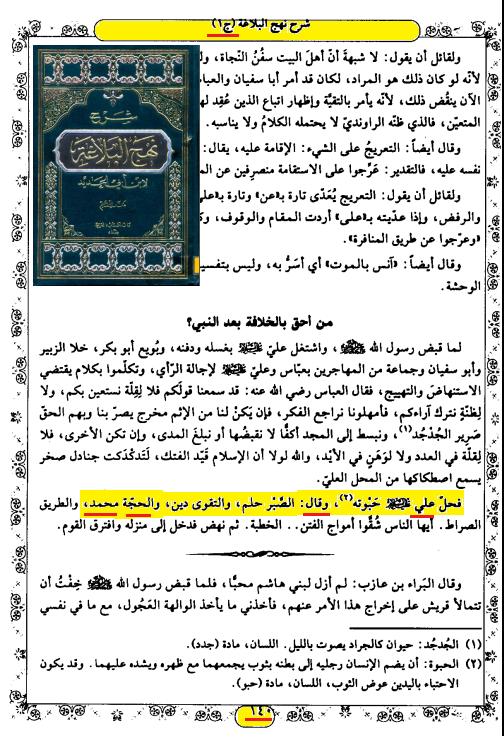 شرح نهج البلاغة (ج١)
ولقائل أن يقول: لا شبهةَ أنّ أهلَ البيت سفُنُ النّجاة،
لأنّه لو كان ذلك هو المراد، لكان قد أمر أبا سفيان والعبا
الآن ينقُض ذلك، لأنّه يأمر بالتقيّة وإظهار اتباع الذين عُقِد لهم
المتعيّن، فالذي ظنّه الراونديّ لا يحتمله الكلامُ ولا يناسبه.
وقال أيضاً: التعريجُ على الشيء: الإقامة عليه، يقال:
نفسه عليه، فالتقدير: عَرِّجوا على الاستقامة منصرفين عن
ولقائل أن يقول: التعريج يُعَدّى تارة بـ«عن» وتارة بـ«على»
والرفض، وإذا عدّيته بـ«على» أردت المقام والوقوف،
«وعرّجوا عن طريق المنافرة».
وقال أيضاً: «آنس بالموت» أي أسَرُّ به، وليس بتفسير
الوحشة.
شرح
نهج البلاغة
لابن أبي الحديد
من أحق بالخلافة بعد النبي؟
لما قبض رسول الله ﷺ، واشتغل عليّ عليه السلام بغسله ودفنه، وبُويع أبو بكر، خلا الزبير
وأبو سفيان وجماعة من المهاجرين بعبّاس وعليّ عليه السلام لإجالة الرّأي، وتكلّموا بكلام يقتضي
الاستنهاضَ والتهييج، فقال العباس رضي الله عنه: قد سمعنا قولَكم فلا لِقِلّة نستعين بكم، ولا
لِظِنّةٍ نترك آراءكم، فأمهلونا نراجع الفكر، فإن يكُنْ لنا من الإثم مخرج يصرّ بنا وبهم الحقّ
صَرِير الجُدْجُد(١)، ونبسط إلى المجد أكفًّا لا نقبضُها أو نبلغَ المدى، وإن تكن الأخرى، فلا
لِقلّة في العدد ولا لوَهَنٍ في الأيْد، والله لولا أن الإسلام قَيْد الفتك، لَتَدكْدَكت جنادل صخر
يسمع اصطكاكها من المحل العليّ.
فحلّ علي عليه السلام حَبْوته(٢)، وقال: الصَّبْر حلم، والتقوى دين، والحجّة محمد، والطريق
الصراط. أيها الناس شُقُّوا أمواج الفتن.. الخطبة. ثم نهض فدخل إلى منزله وافترق القوم.
وقال البَراء بن عازب: لم أزل لبني هاشم محبًّا، فلما قبض رسول الله ﷺ خِفْتُ أن
تتمالأ قريش على إخراج هذا الأمر عنهم، فأخذني ما يأخذ الوالهة العَجُول، مع ما في نفسي
(١) الجُدجُد: حيوان كالجراد يصوت بالليل. اللسان، مادة (جدد).
(٢) الحبوة: أن يضم الإنسان رجليه إلى بطنه بثوب يجمعهما مع ظهره ويشده عليهما. وقد يكون
الاحتباء باليدين عوض الثوب، اللسان، مادة (حبو).
١٤٠